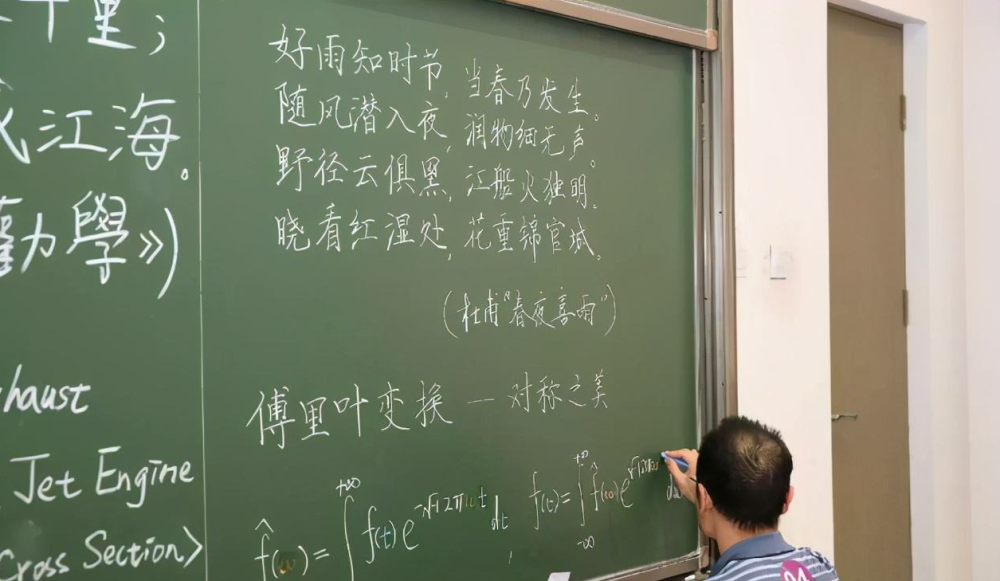 千里；
江海。
學》)
haust
Jet Engine
Cross Section>
好雨知时节，当春乃发生。
随风潜入夜，润物细无声。
野径云俱黑，江船火独明。
晓看红湿处，花重锦官城。
(杜甫"春夜喜雨")
傅里叶变换 — 对称之美
f̂(ω) = ∫^{+∞} f(t) e^{-√-1 2πωt} dt, f(t) = ∫_{-∞}^{+∞} f̂(ω) e^{√-1 2πω} dω